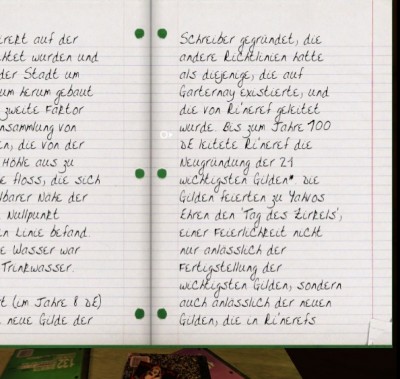 erekt auf der
chtet wurden und
der Stadt um
um herum gebaut
zweite Faktor
nsammlung von
en, die von der
Höhe aus zu
e floss, die sich
lbarer Nähe der
Nullpunkt
en Linie befand.
e Wasser war
Trinkwasser.
t (im Jahre 8 DE)
neue Gilde der
Schreiber gegründet, die
andere Richtlinien hatte
als diejenige, die auf
Garternay existierte, und
die von Ri'neref geleitet
wurde. Bis zum Jahre 100
DE leitete Ri'neref die
Neugründung der 21
wichtigsten Gilden*. Die
Gilden feierten zu Yahvos
Ehren den 'Tag des Zirkels',
einer Feierlichkeit nicht
nur anlässlich der
Fertigstellung der
wichtigsten Gilden, sondern
auch anlässlich der neuen
Gilden, die in Ri'nerefs